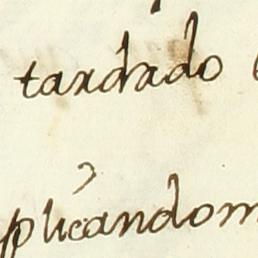 tardado
plicandom